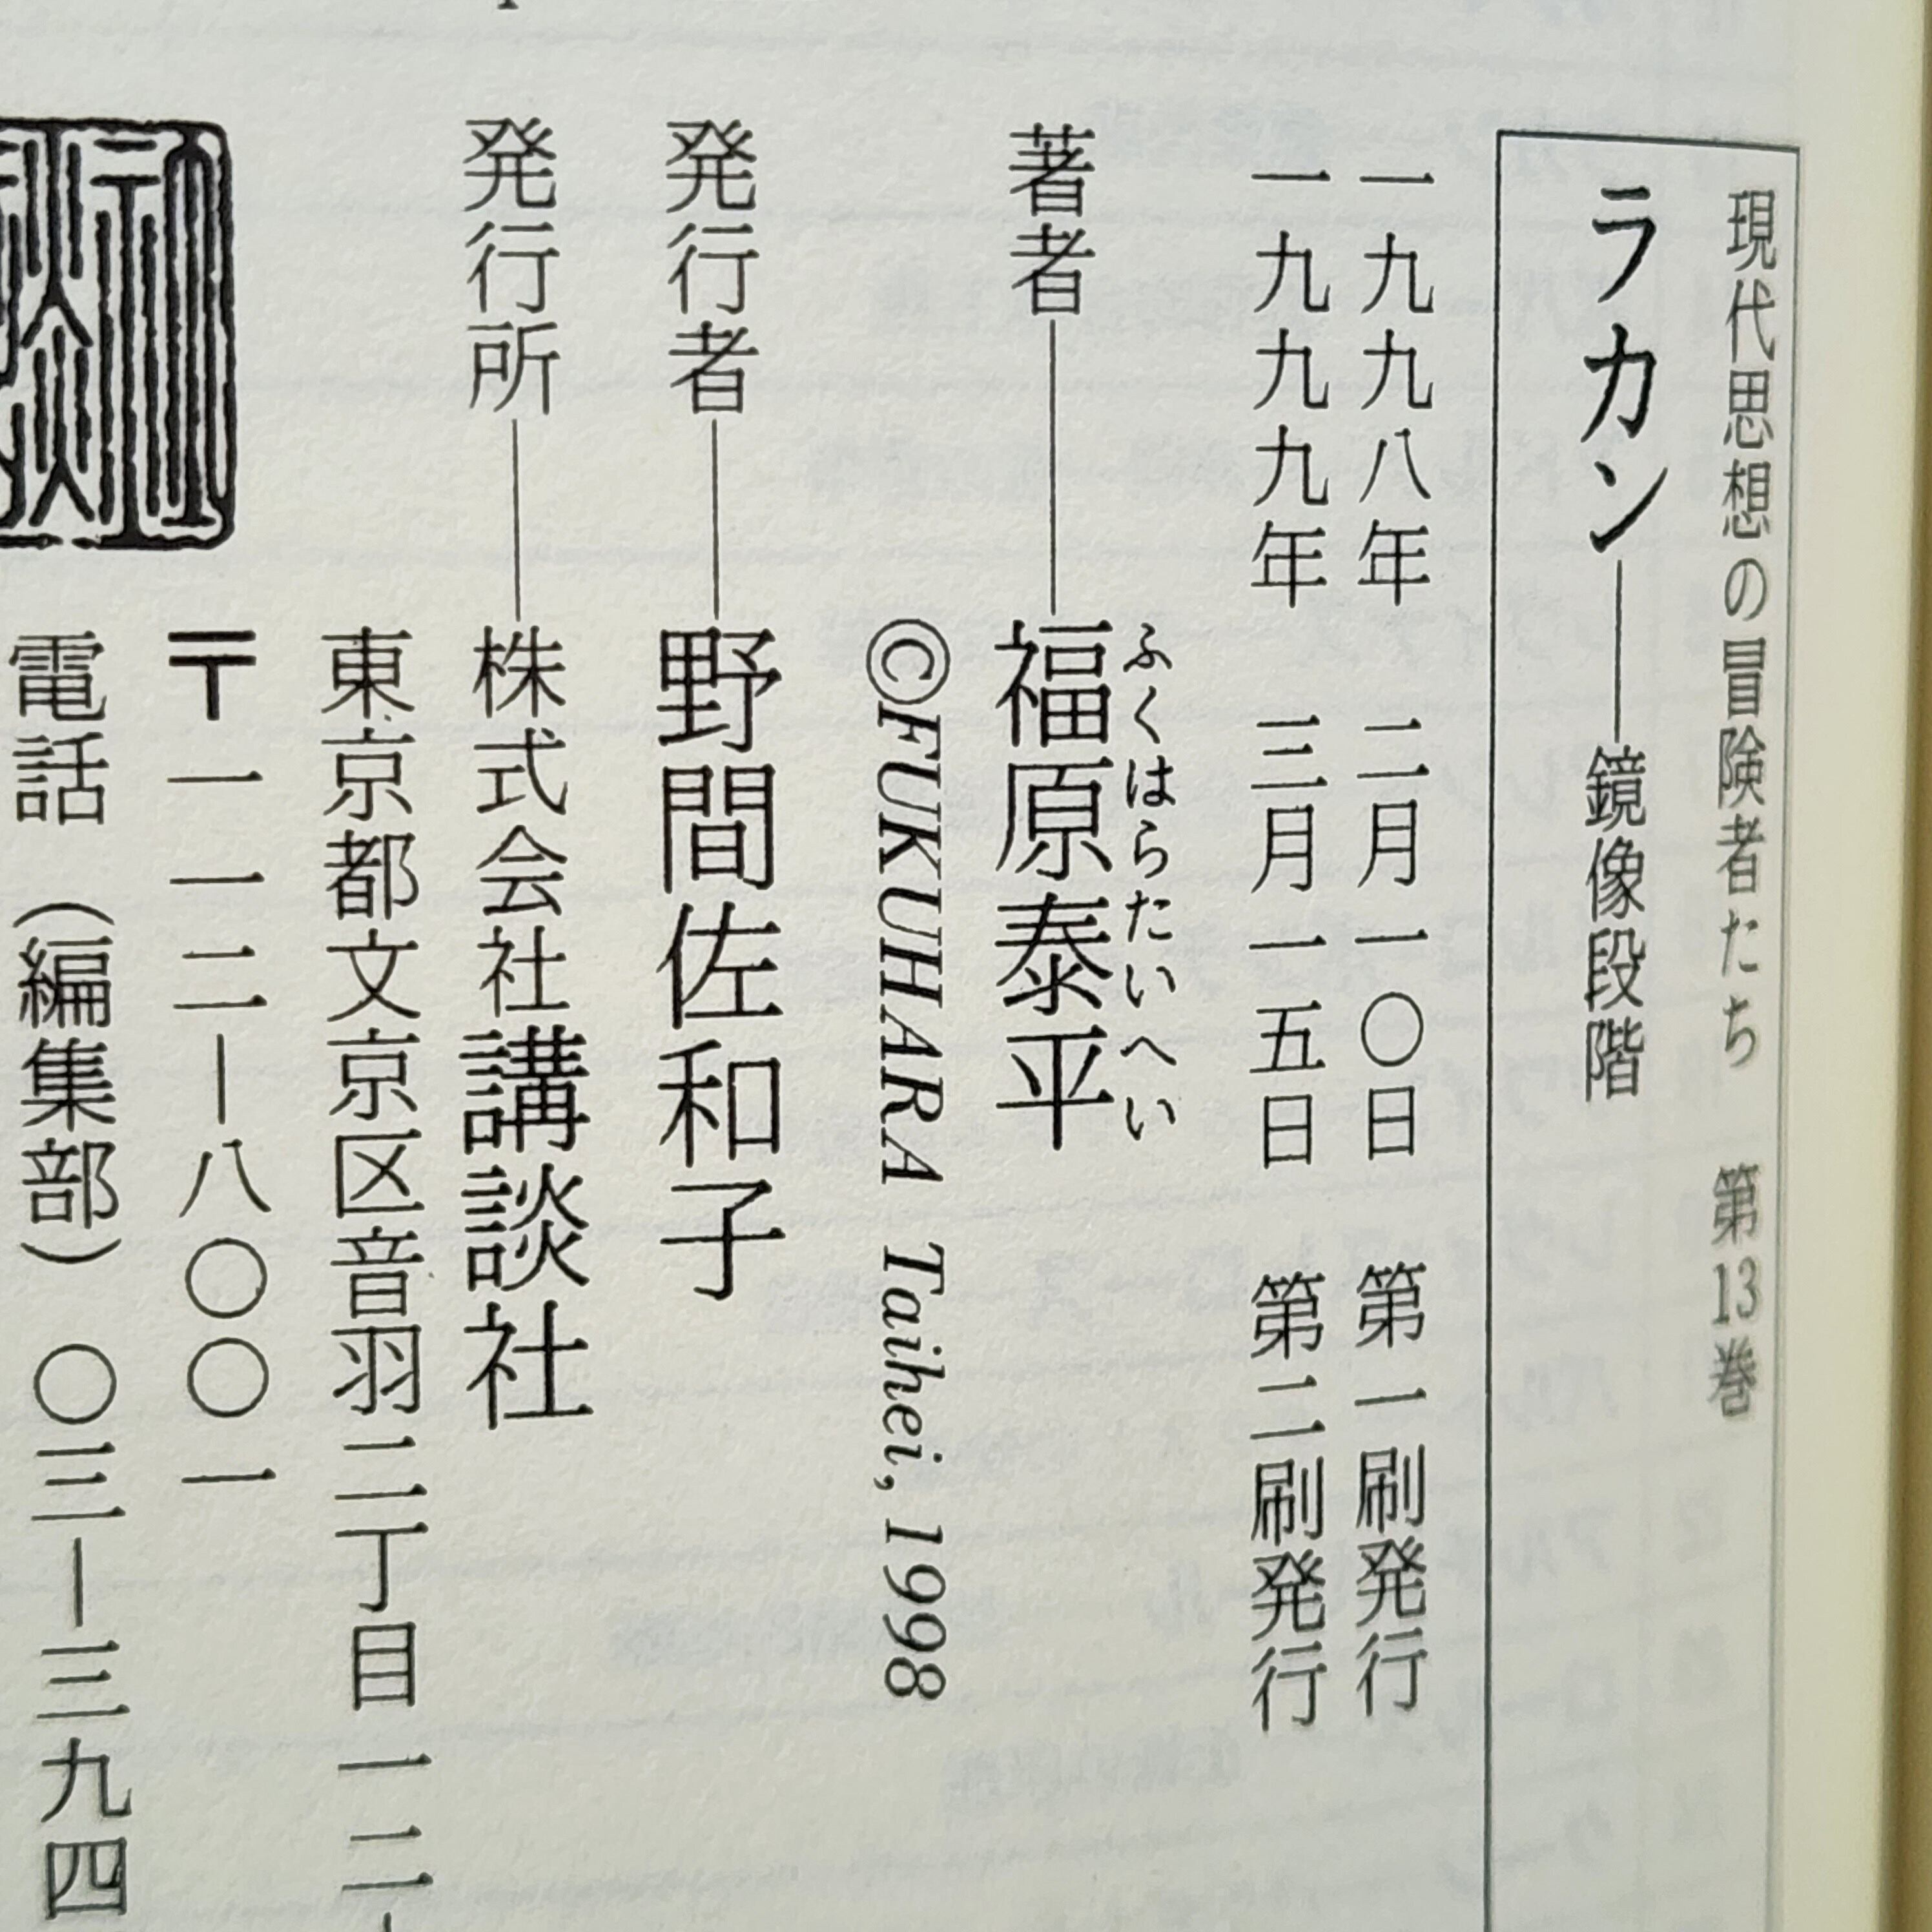 現代思想の冒険者たち　第13巻
ラカン——鏡像段階
一九九八年　二月一〇日　第一刷発行
一九九九年　三月一五日　第二刷発行
ふくはらたいへい
著者——福原泰平
©FUKUHARA Taihei, 1998
発行者——野間佐和子
発行所——株式会社講談社
東京都文京区音羽二丁目一二
〒一一二—八〇〇一
電話（編集部）〇三—三九四